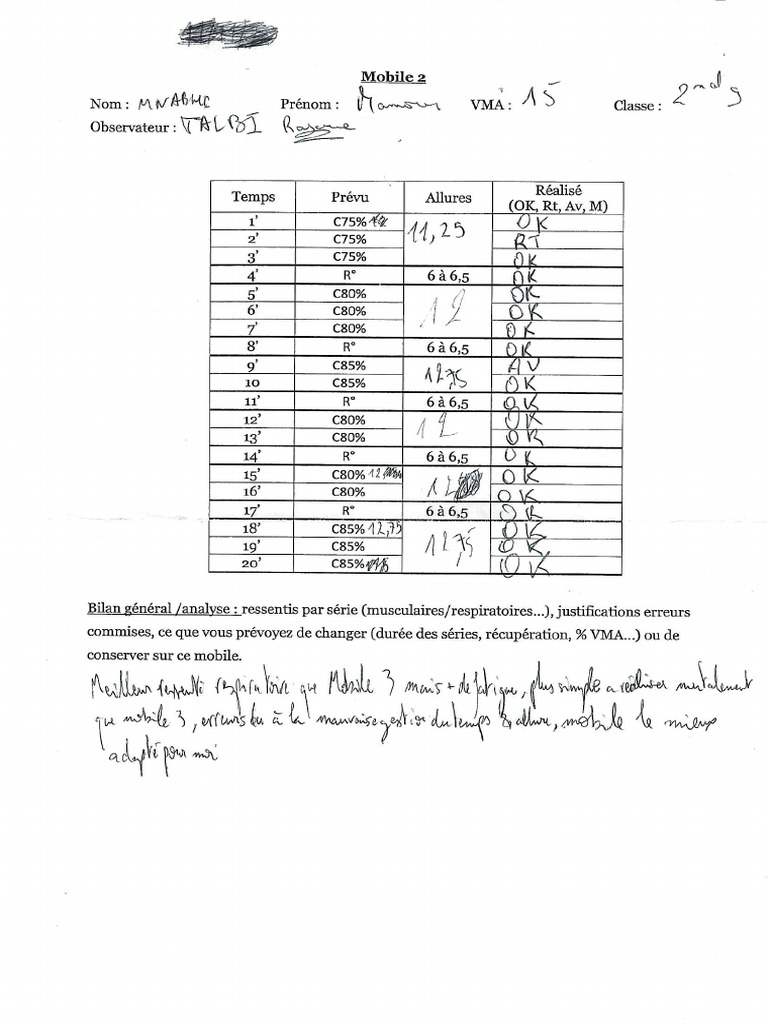 Mobile 2
Nom : Prénom : VMA : 15 Classe : 2nd g
Observateur : TALBI
Temps Prévu Allures Réalisé
(OK, Rt, Av, M)
1' C75% 11,25 OK
2' C75% RT
3' C75% OK
4' R° 6 à 6,5 OK
5' C80% 12 OK
6' C80% OK
7' C80% OK
8' R° 6 à 6,5 OK
9' C85% 12,75 AV
10 C85% OK
11' R° 6 à 6,5 OK
12' C80% 12 OK
13' C80% OK
14' R° 6 à 6,5 OK
15' C80% 12 OK
16' C80% OK
17' R° 6 à 6,5 OK
18' C85% 12,75 12,75 OK
19' C85% OK
20' C85% OK
Bilan général /analyse : ressentis par série (musculaires/respiratoires...), justifications erreurs
commises, ce que vous prévoyez de changer (durée des séries, récupération, % VMA...) ou de
conserver sur ce mobile.
Meilleur ressenti respiratoire que Mobile 3 mais + de fatigue, plus simple a réaliser mentalement
que mobile 3, erreurs du à la mauvaise gestion du temps & allure, mobile le mieux
adapté pour moi